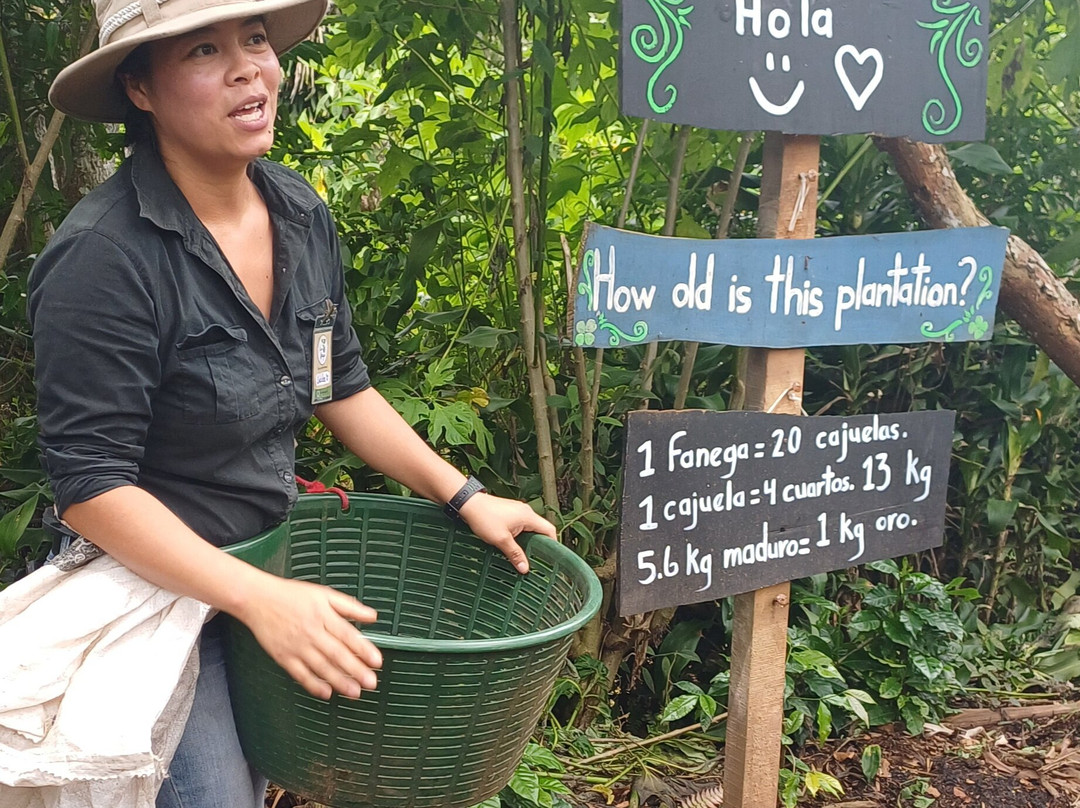 Hola
How old is this plantation?
1 Fanega = 20 cajuelas.
1 cajuela = 4 cuartos. 13 kg
5.6 kg maduro = 1 kg oro.